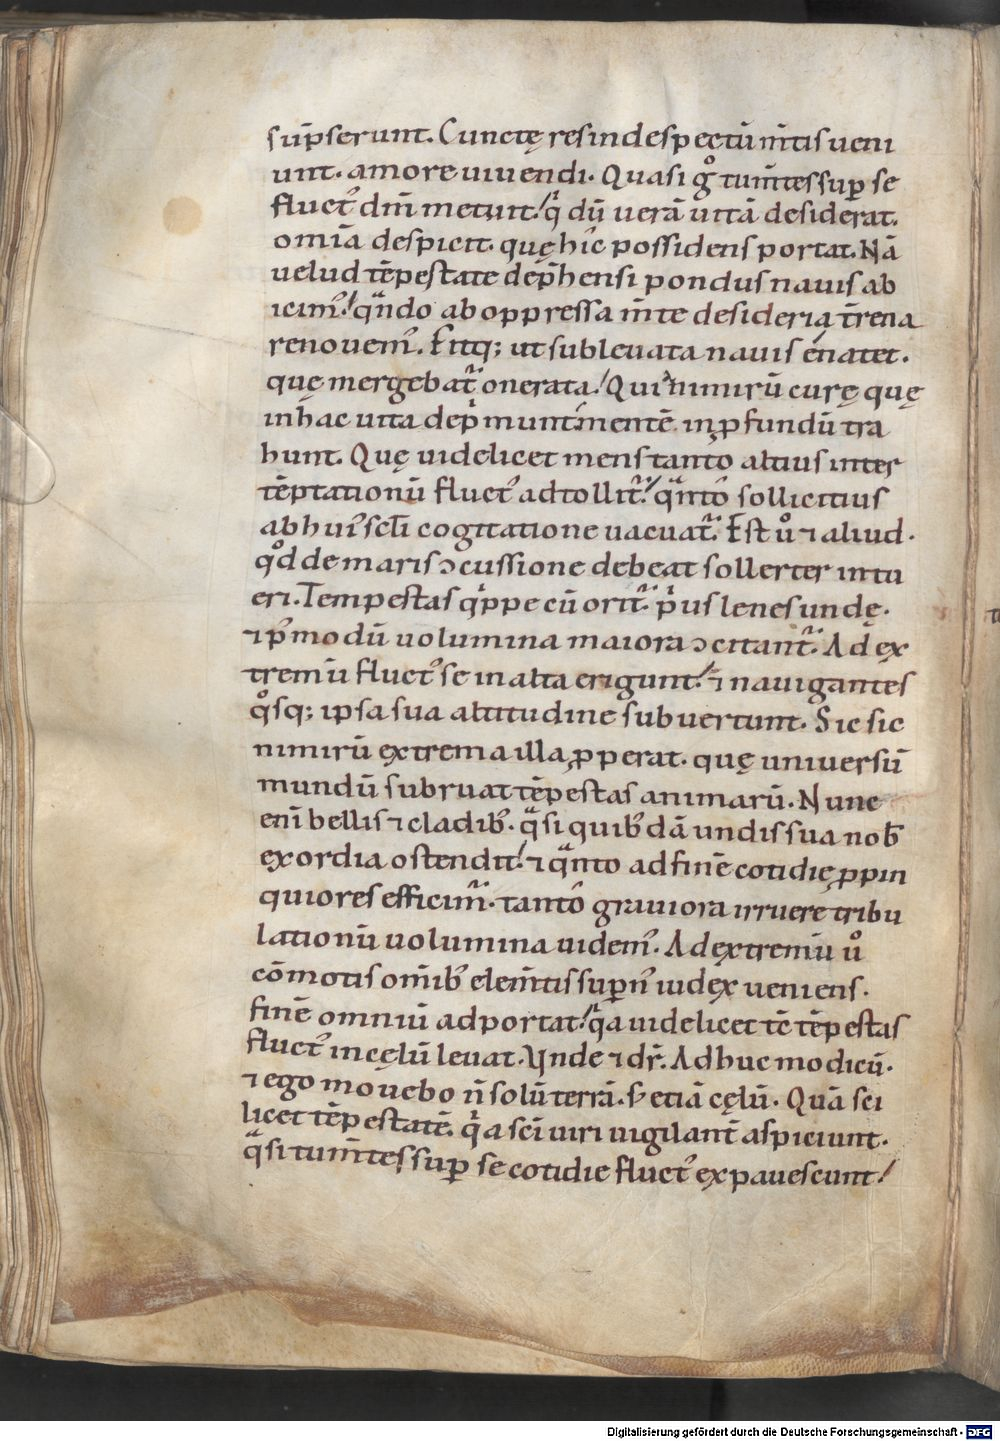 sūpserunt. Cunctę res in despectū m̄tis ueni
unt. amore uiuendi. Quasi gͦ tum̄tes sup̲ se
fluct᷒ dm̄ metuit! q̇ dū uerā uitā desiderat.
omīa despicit. quę hīc possidens portat. Nā
uelud tēpestate dep̄hensi pondus nauis ab
icim᷒! qͣndo ab oppressa m̄te desideria t̄rena
renouem᷒. Fitq; ut subleuata nauis enatet.
quę mergebat᷑ onerata! Quia nimirū curę quę
in hac uita dep̍munt mentē. in ꝓfundū tra
hunt. Quę uidelicet mens tanto altius inter
tēptationū fluct᷒ adtollit᷑! qͣntō sollicitius
ab hui᷒ sc̄li cogitatione uacuat᷑. Est uͦ ⁊ aliud.
qͦd de maris ɔcussione debeat sollerter intu
eri. Tempestas q̍ppe cū orit᷑. p̍us lenes undę.
⁊ p᷒modū uolumina maiora ɔcitant᷑. Ad ex
tremū fluct᷒ se in alta erigunt! ⁊ nauigantes
qͦsq; ipsa sua altitudine subuertunt. Sic sic
nimirū extrema illa ꝓperat. quę uniuersū
mundū subruat tēpestas animarū. Nunc
eni᷒ bellis ⁊ cladib᷒. qͣsi quib᷒dā undis sua nob̄
exordia ostendit! ⁊ qͣnto ad finē cotidię ꝓpin
quiores efficim᷑. tantō grauiora irruere tribu
lationū uolumina uidem᷒. Ad extremū uͦ
cōmotis om̄ib᷒ elem̄tis sup̲n᷒ iudex ueniens.
finē omniū adportat! q̍a uidelicet tē tēpestas
fluct᷒ in cęlū leuat. Unde ⁊ dr̄. Adhuc modicū.
⁊ ego mouebo n̄ solū terrā. s; etiā cęlū. Quā sci
licet tēpestatē. q̍a sc̄i uiri uigilant̄ aspiciunt.
qͣsi tum̄tes sup̲ se cotidie fluct᷒ expauescunt!
Digitalisierung gefördert durch die Deutsche Forschungsgemeinschaft - DFG